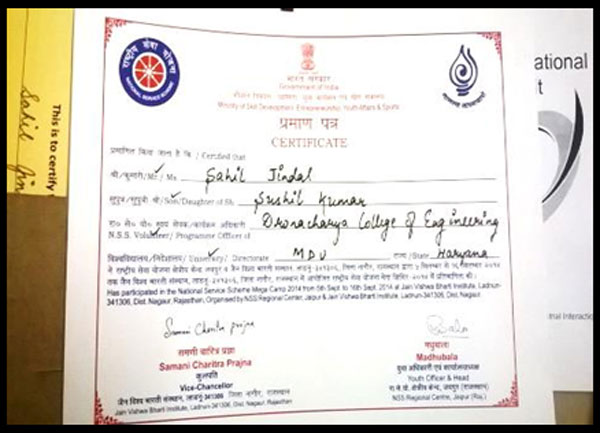 This is to certify
Sahil Jin
राष्ट्रीय सेवा योजना
NATIONAL SERVICE SCHEME
भारत सरकार
Government of India
Ministry of Skill Development, Entrepreneurship, Youth Affairs & Sports
प्रमाण पत्र
CERTIFICATE
प्रमाणित किया जाता है कि / Certified that
श्री/कुमारी/Mr./ Ms. Sahil Jindal
सुपुत्र/सुपुत्री श्री/Son/Daughter of Sh. Sushil Kumar
रा० से० यो० स्वयं सेवक/कार्यक्रम अधिकारी Dronacharya College of Engineering
N.S.S. Volunteer/ Programme Officer of
विश्वविद्यालय/निदेशालय/ University/ Directorate MDU राज्य/State Haryana
Has participated in the National Service Scheme Mega Camp 2014 from 5th Sept. to 16th Sept. 2014 at Jain Vishwa Bharti Institute, Ladnun-
341306, Dist. Nagaur, Rajasthan, Organised by NSS Regional Center, Jaipur & Jain Vishwa Bharati Institute, Ladnun-341306, Dist. Nagaur.
Samani Charitra prajna
समणी चारित्र प्रज्ञा
Samani Charitra Prajna
कुलपति
Vice-Chancellor
जैन विश्व भारती संस्थान, लाडनूं-341306, जिला नागौर, राजस्थान
Jain Vishwa Bharti Institute, Ladnun-341306, Dist. Nagaur, Rajasthan
मधुबाला
Madhubala
युवा अधिकारी एवं कार्यालयाध्यक्ष
Youth Officer & Head
रा.से.यो. क्षेत्रीय केन्द्र, जयपुर (राजस्थान)
NSS Regional Centre, Jaipur (Raj.)
ational
t
trial Interactio